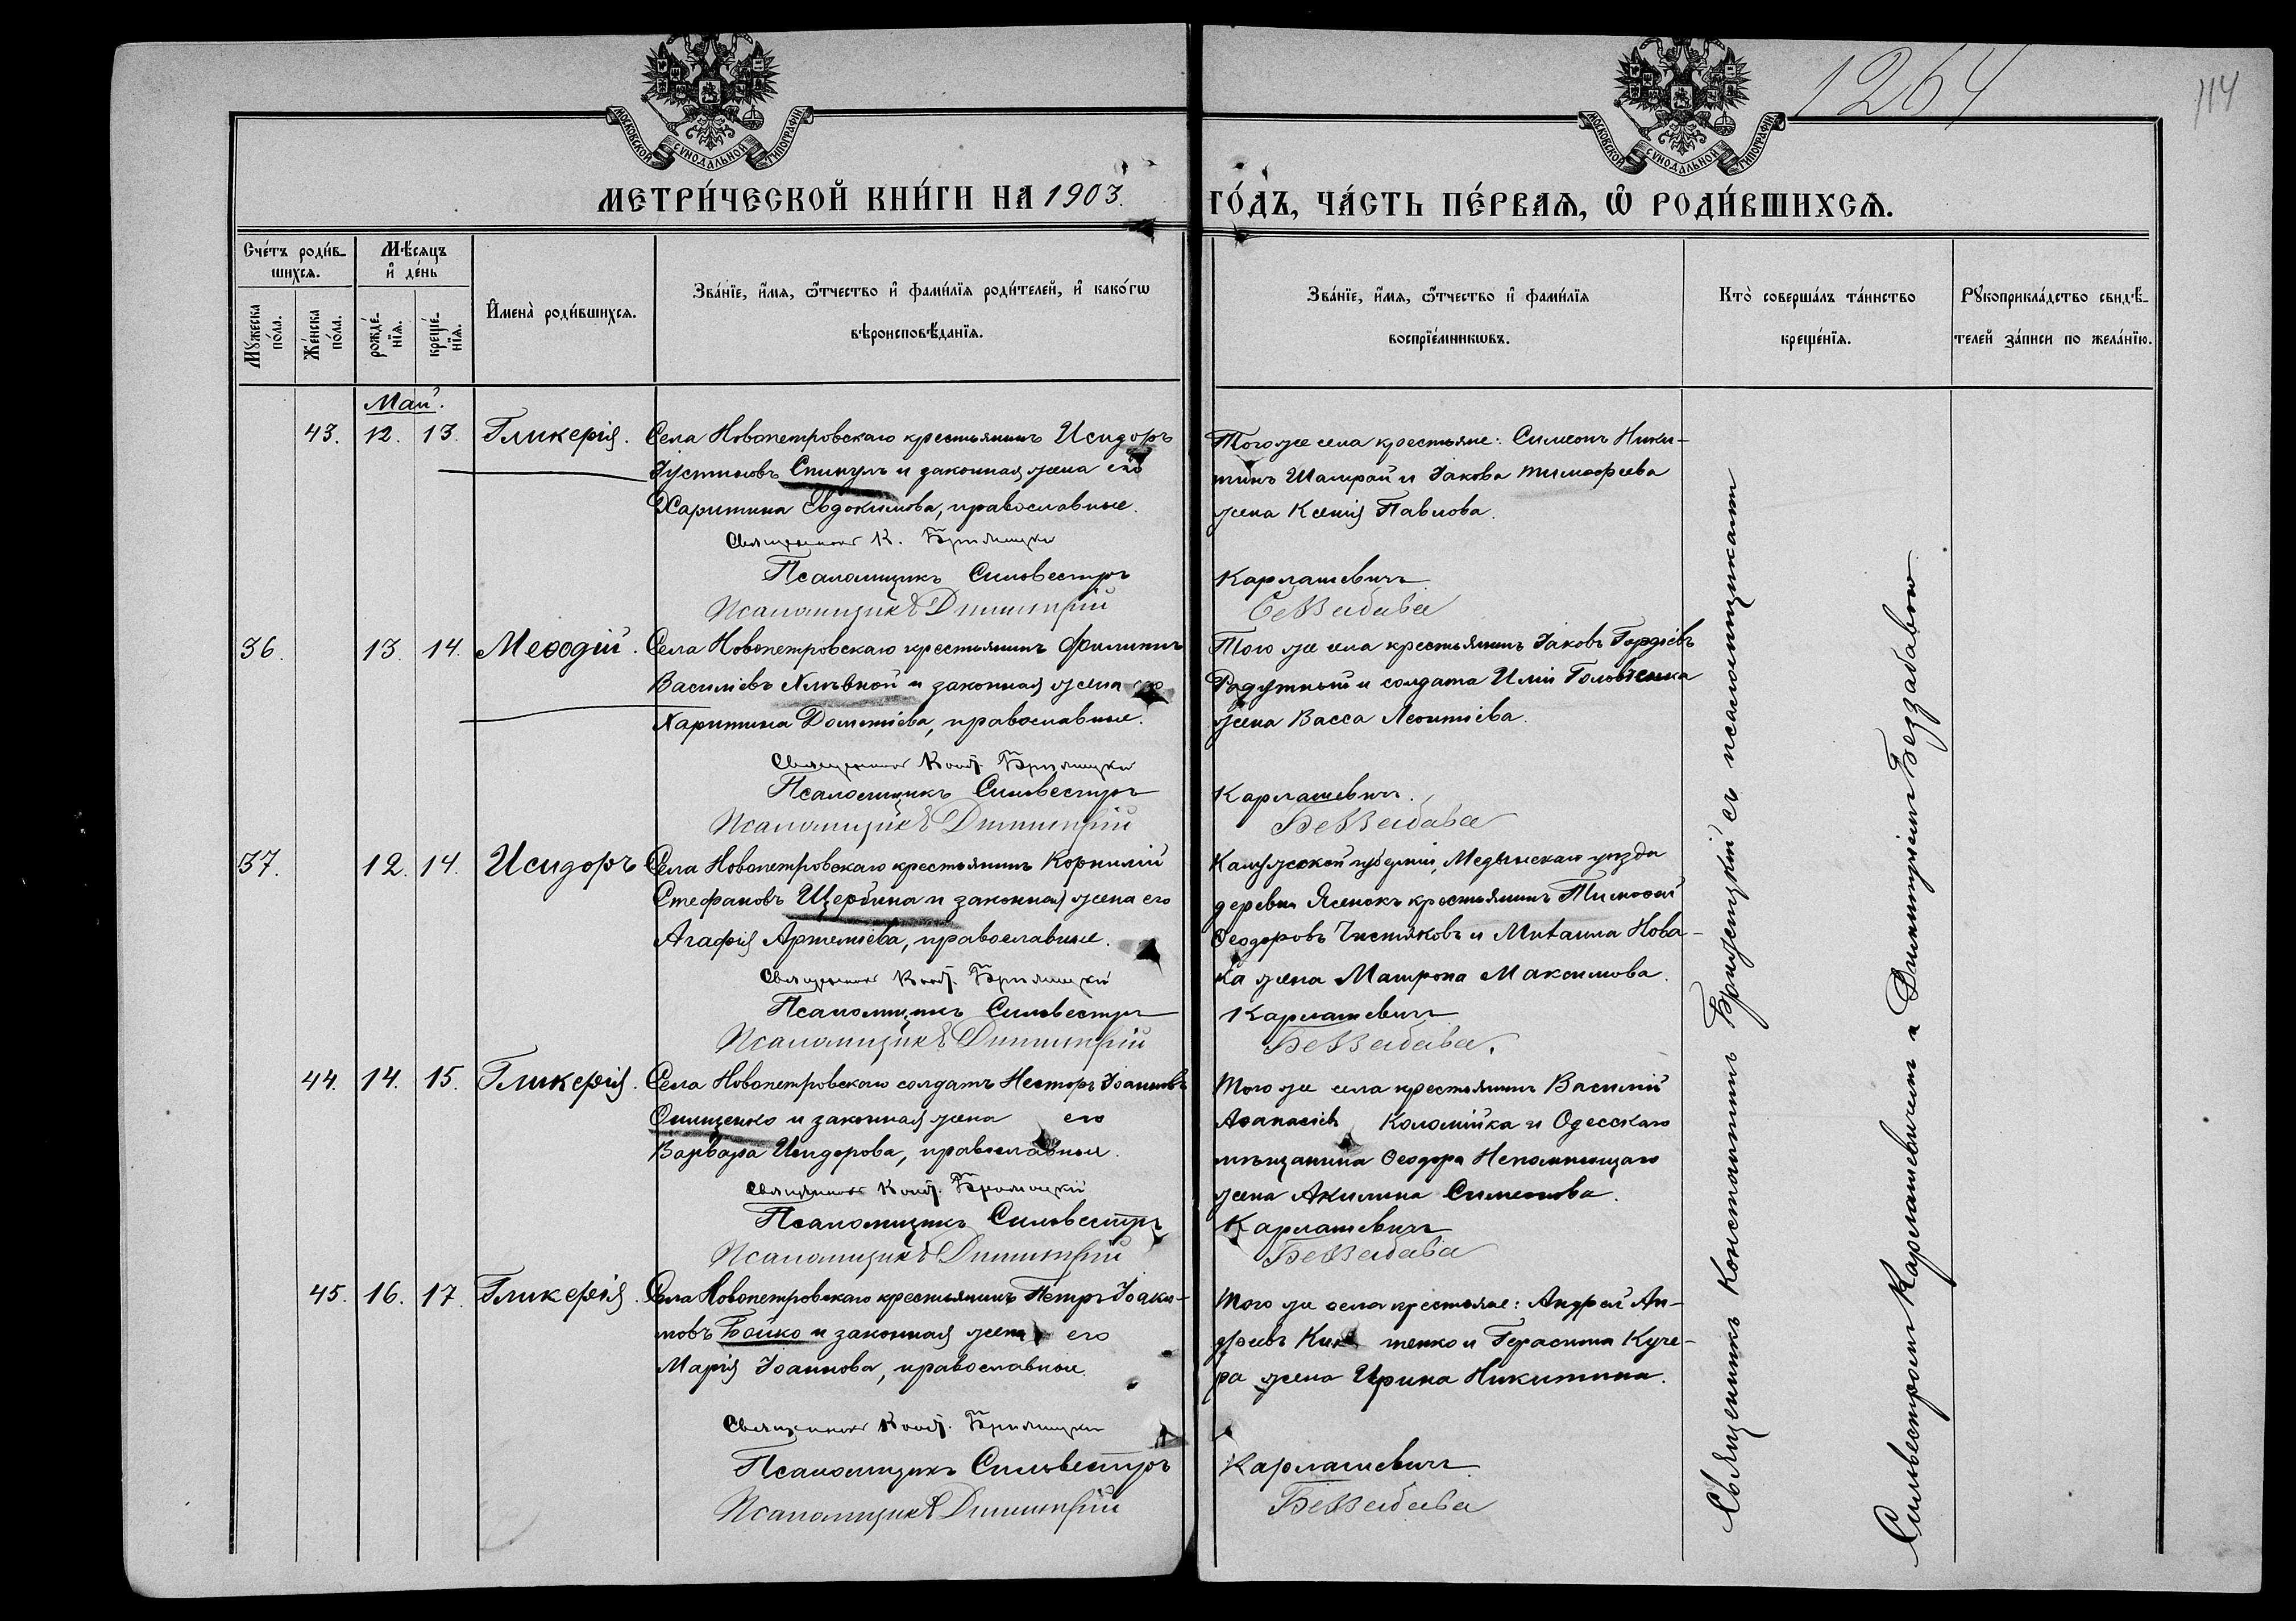 1264
114
МОСКОВСКОЙ СѴНОДАЛЬНОЙ ТИПОГРАФІИ
МОСКОВСКОЙ СѴНОДАЛЬНОЙ ТИПОГРАФІИ
МЕТРИ́ЧЕСКОЙ КНИ́ГИ НА 1903. ГО́ДЪ, ЧА́СТЬ ПЕ́РВАѦ, Ѡ҆ РОДИ́ВШИХСѦ.
Сче́тъ роди́в-
шихсѧ.
Мꙋ́жеска по́ла.
Же́нска по́ла.
Мѣ́сѧцъ и҆ де́нь
рожде́-
нїѧ.
креще́-
нїѧ.
И҆мена̀ роди́вшихсѧ.
Зва́нїе, и҆́мѧ, ѻ҆́тчество и҆ фами́лїѧ роди́телей, и҆ како́гѡ
вѣроисповѣ́данїѧ.
Зва́нїе, и҆́мѧ, ѻ҆́тчество и҆ фами́лїѧ
воспрїе́мникѡвъ.
Кто̀ соверша́лъ та́инство
креще́нїѧ.
Рꙋкоприкла́дство свидѣ́-
телей за́писи по жела́нїю.
Май.
43. 12. 13. Гликерія. Села Новопетровскаго крестьянинъ Исидоръ
Іустиновъ Спинулъ и законная жена его
Харитина Евдокимова, православные.
Священникъ К. Бржезицкій
Псаломщикъ Сильвестръ
Псаломщикъ Димитрій
Того же села крестьяне: Симеонъ Ники-
тинъ Шамрай и Іакова Тимофеева
жена Ксенія Павлова.
Карлашевичъ
Беззабава
36. 13. 14. Меѳодій. Села Новопетровскаго крестьянинъ Филиппъ
Василіевъ Хлѣвной и законная жена его
Харитина Дометіева, православные.
Священникъ Конст. Бржезицкій
Псаломщикъ Сильвестръ
Псаломщикъ Димитрій
Того же села крестьянинъ Іаковъ Гордіевъ
Радутный и солдата Иліи Головченка
жена Васса Леонтіева.
Карлашевичъ.
Беззабава
37. 12. 14. Исидоръ Села Новопетровскаго крестьянинъ Корнилій
Стефановъ Щербина и законная жена его
Агафія Артеміева, православные.
Священникъ Конст. Бржезицкій
Псаломщикъ Сильвестръ
Псаломщикъ Димитрій
Калужской губерніи, Медынскаго уѣзда
деревни Ясенокъ крестьянинъ Тимоѳей
Ѳеодоровъ Чистяковъ и Михаила Нова-
ка жена Матрона Максимова.
Карлашевичъ
Беззабава.
44. 14. 15. Гликерія. Села Новопетровскаго солдатъ Несторъ Іоанновъ
Онищенко и законная жена его
Варвара Исидорова, православные.
Священникъ Конст. Бржезицкій
Псаломщикъ Сильвестръ
Псаломщикъ Димитрій
Того же села крестьянинъ Василій
Аѳанасіевъ Коломійка и Одесскаго
мѣщанина Ѳеодора Непомнющаго
жена Акилина Симеонова.
Карлашевичъ
Беззабава
45. 16. 17. Гликерія. Села Новопетровскаго крестьянинъ Петръ Іоаки-
мовъ Бойко и законная жена его
Марія Іоаннова, православные.
Священникъ Конст. Бржезицкій
Псаломщикъ Сильвестръ
Псаломщикъ Димитрій
Того же села крестьяне: Андрей Ан-
дреевъ тенко и Герасима Куче-
ра жена Ирина Никитина.
Карлашевичъ
Беззабава
Священникъ Константинъ Бржезицкій съ псаломщиками
Сильвестромъ Карлашевичемъ и Димитріемъ Беззабавою